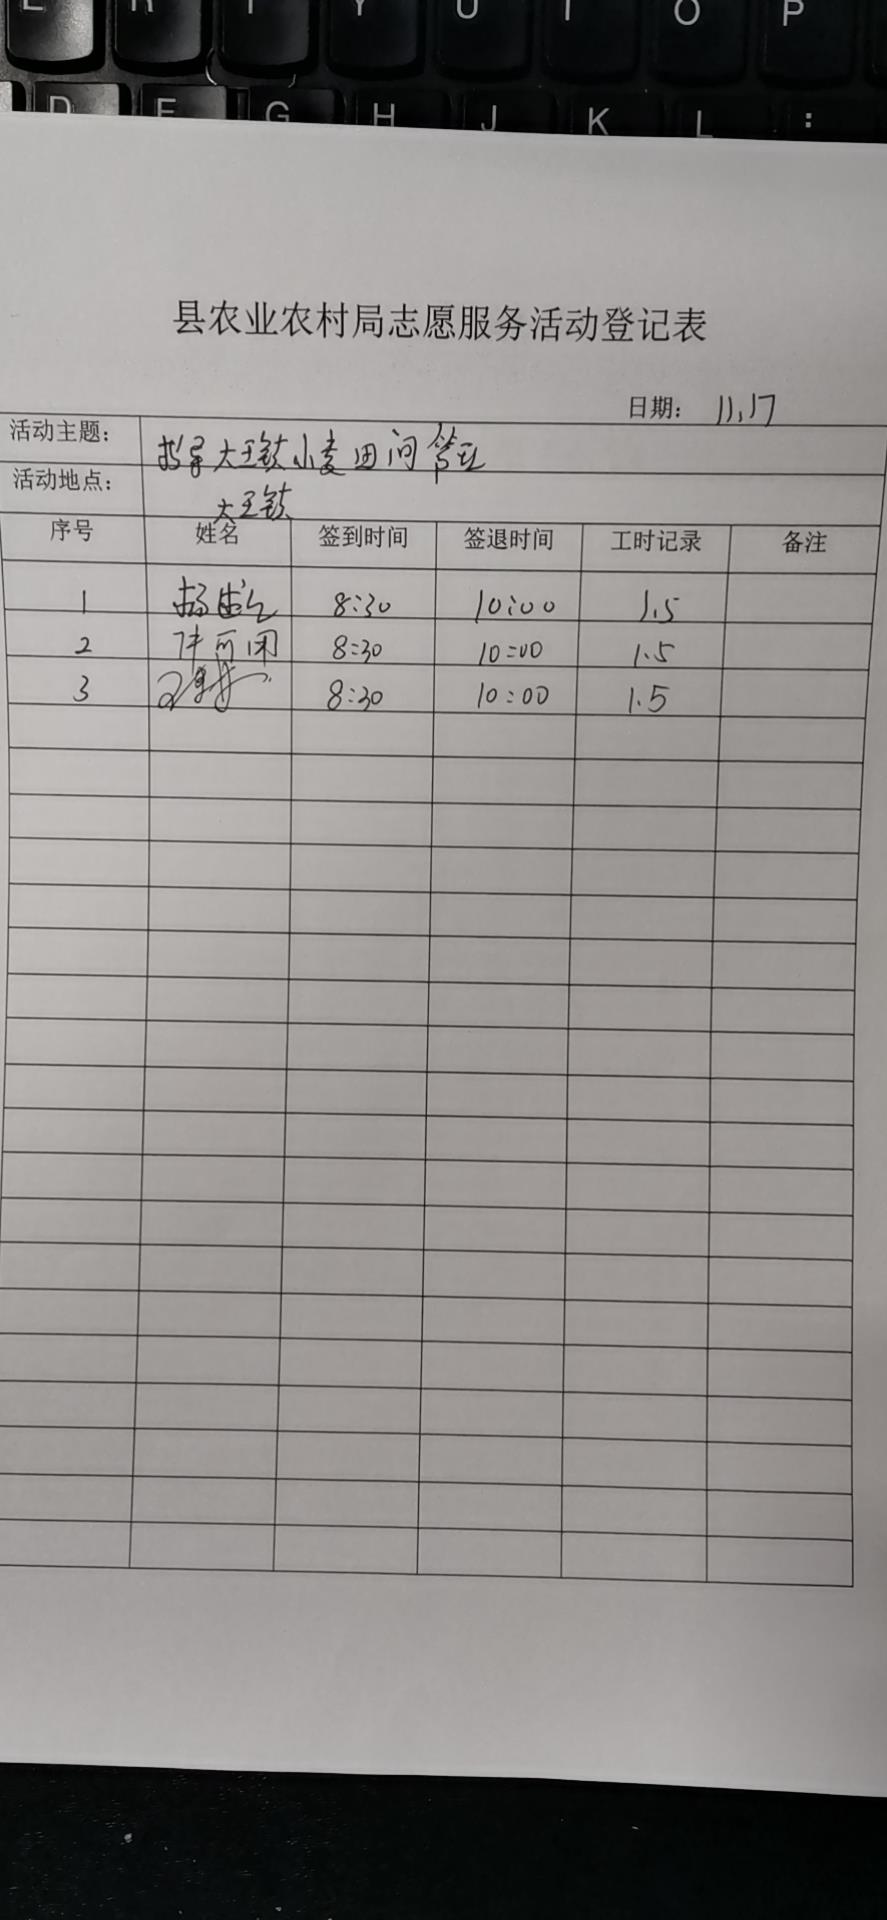 E R T Y U I O P
D F G H J K L :
县农业农村局志愿服务活动登记表
日期： 11.17
活动主题： 指导大王镇小麦田间管理
活动地点： 大王镇
序号 姓名 签到时间 签退时间 工时记录 备注
1 杨 8:30 10:00 1.5
2 8:30 10:00 1.5
3 8:30 10:00 1.5